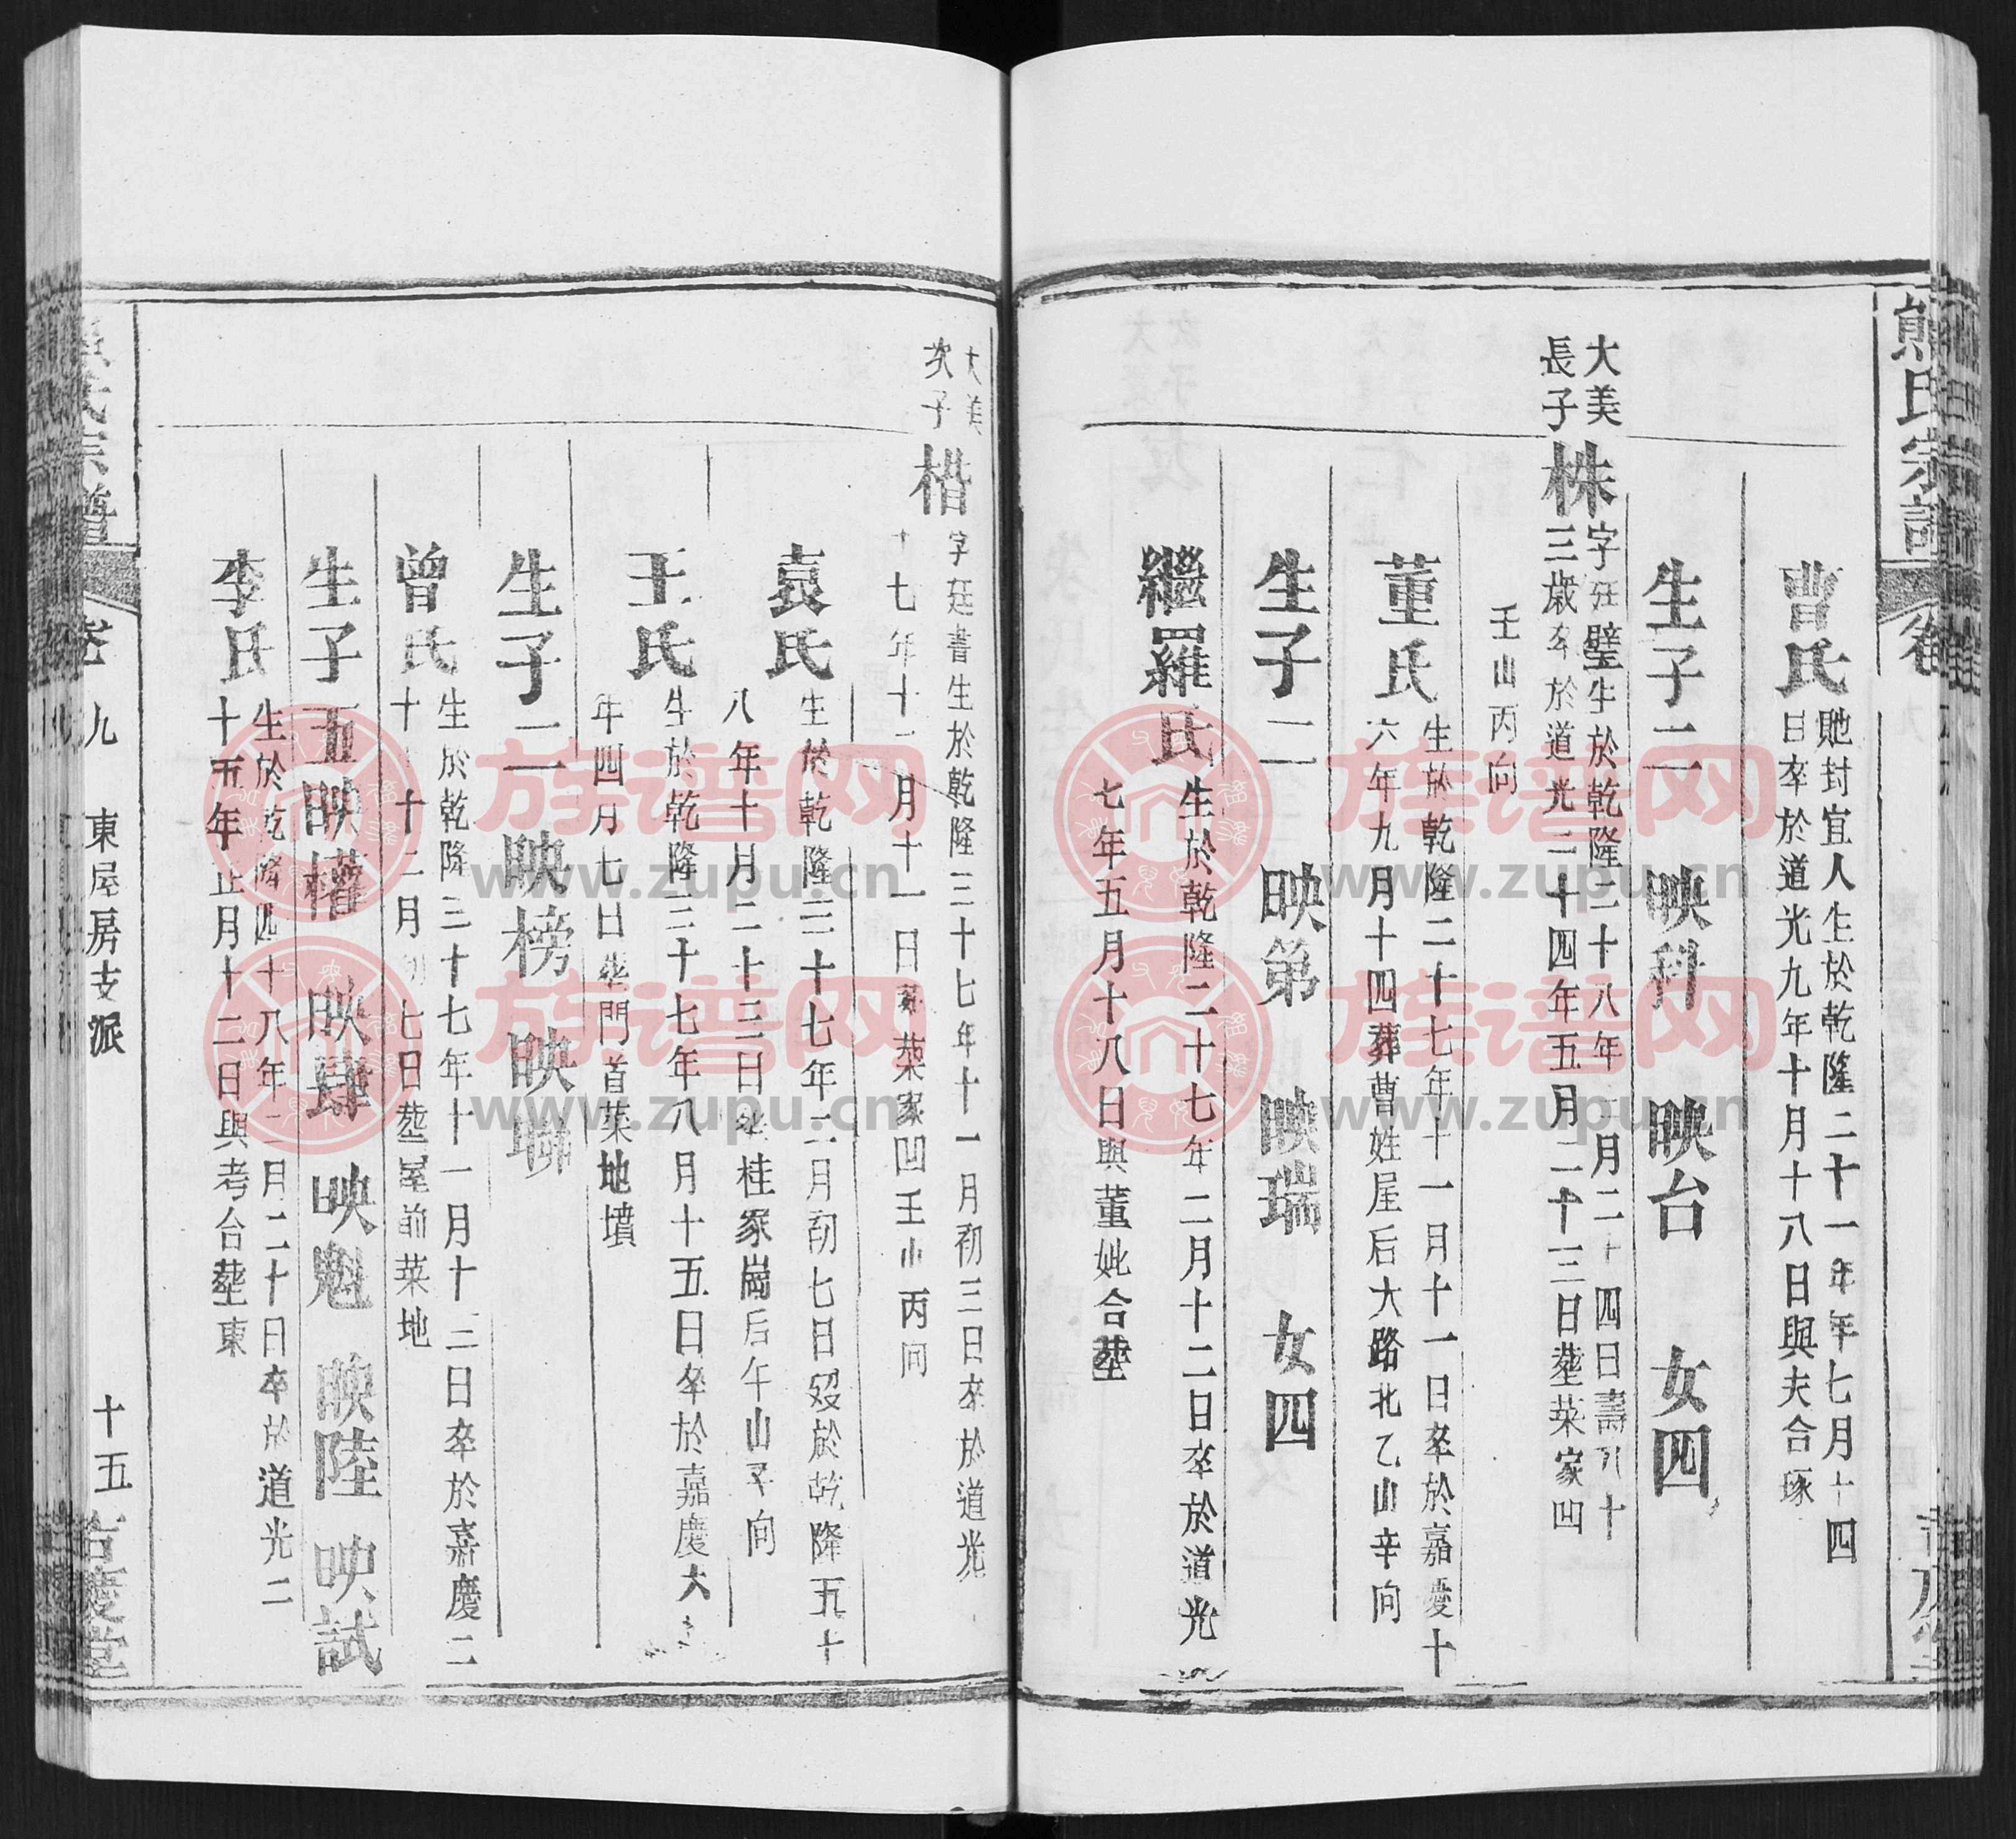 熊氏宗譜
卷
曹氏
貤封宜人生於乾隆二十一年年七月十四
日卒於道光九年十月十八日與夫合琢
生子二 映科 映台 女四
大美
長子
株
字廷璧生於乾隆二十八年二月二十四日壽六十
三歲卒於道光二十四年五月二十三日塟菜家凹
壬山丙向
董氏
生於乾隆二十七年十一月十一日卒於嘉慶十
六年九月十四葬曹姓屋后大路北乙山辛向
生子二 映第 映瑞 女四
繼羅氏
生於乾隆二十七年二月十二日卒於道光
七年五月十八日與董妣合塟
大美
次子
楷
字廷書生於乾隆三十七年十一月初三日卒於道光
十七年十二月十一日塟菜家凹壬山丙向
袁氏
生於乾隆三十七年二月初七日歿於乾隆五十
八年十月二十三日塟桂家崗后午山子向
王氏
生於乾隆三十七年八月十五日卒於嘉慶六
年四月七日塟門首菜地墳
生子二 映榜 映聯
曾氏
生於乾隆三十七年十一月十二日卒於嘉慶二
十 十二月初七日塟屋前菜地
生子五映權 映肆 映魁 映陸 映試
李氏
生於乾隆四十八年二月二十日卒於道光二
十五年正月十二日與考合塟東
熊氏宗譜
卷九 東屋房支派
十五 吉慶堂
族谱网
www.zupu.cn
族谱网
www.zupu.cn
族谱网
www.zupu.cn
族谱网
www.zupu.cn